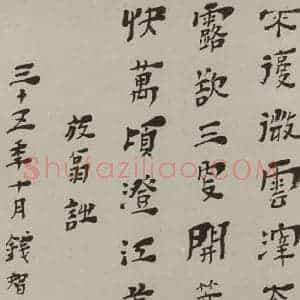 復微雲滓太
露欲三更開
快萬頃澄江
放翁詩
三十五年十月錢智
Shufaziliao.COM